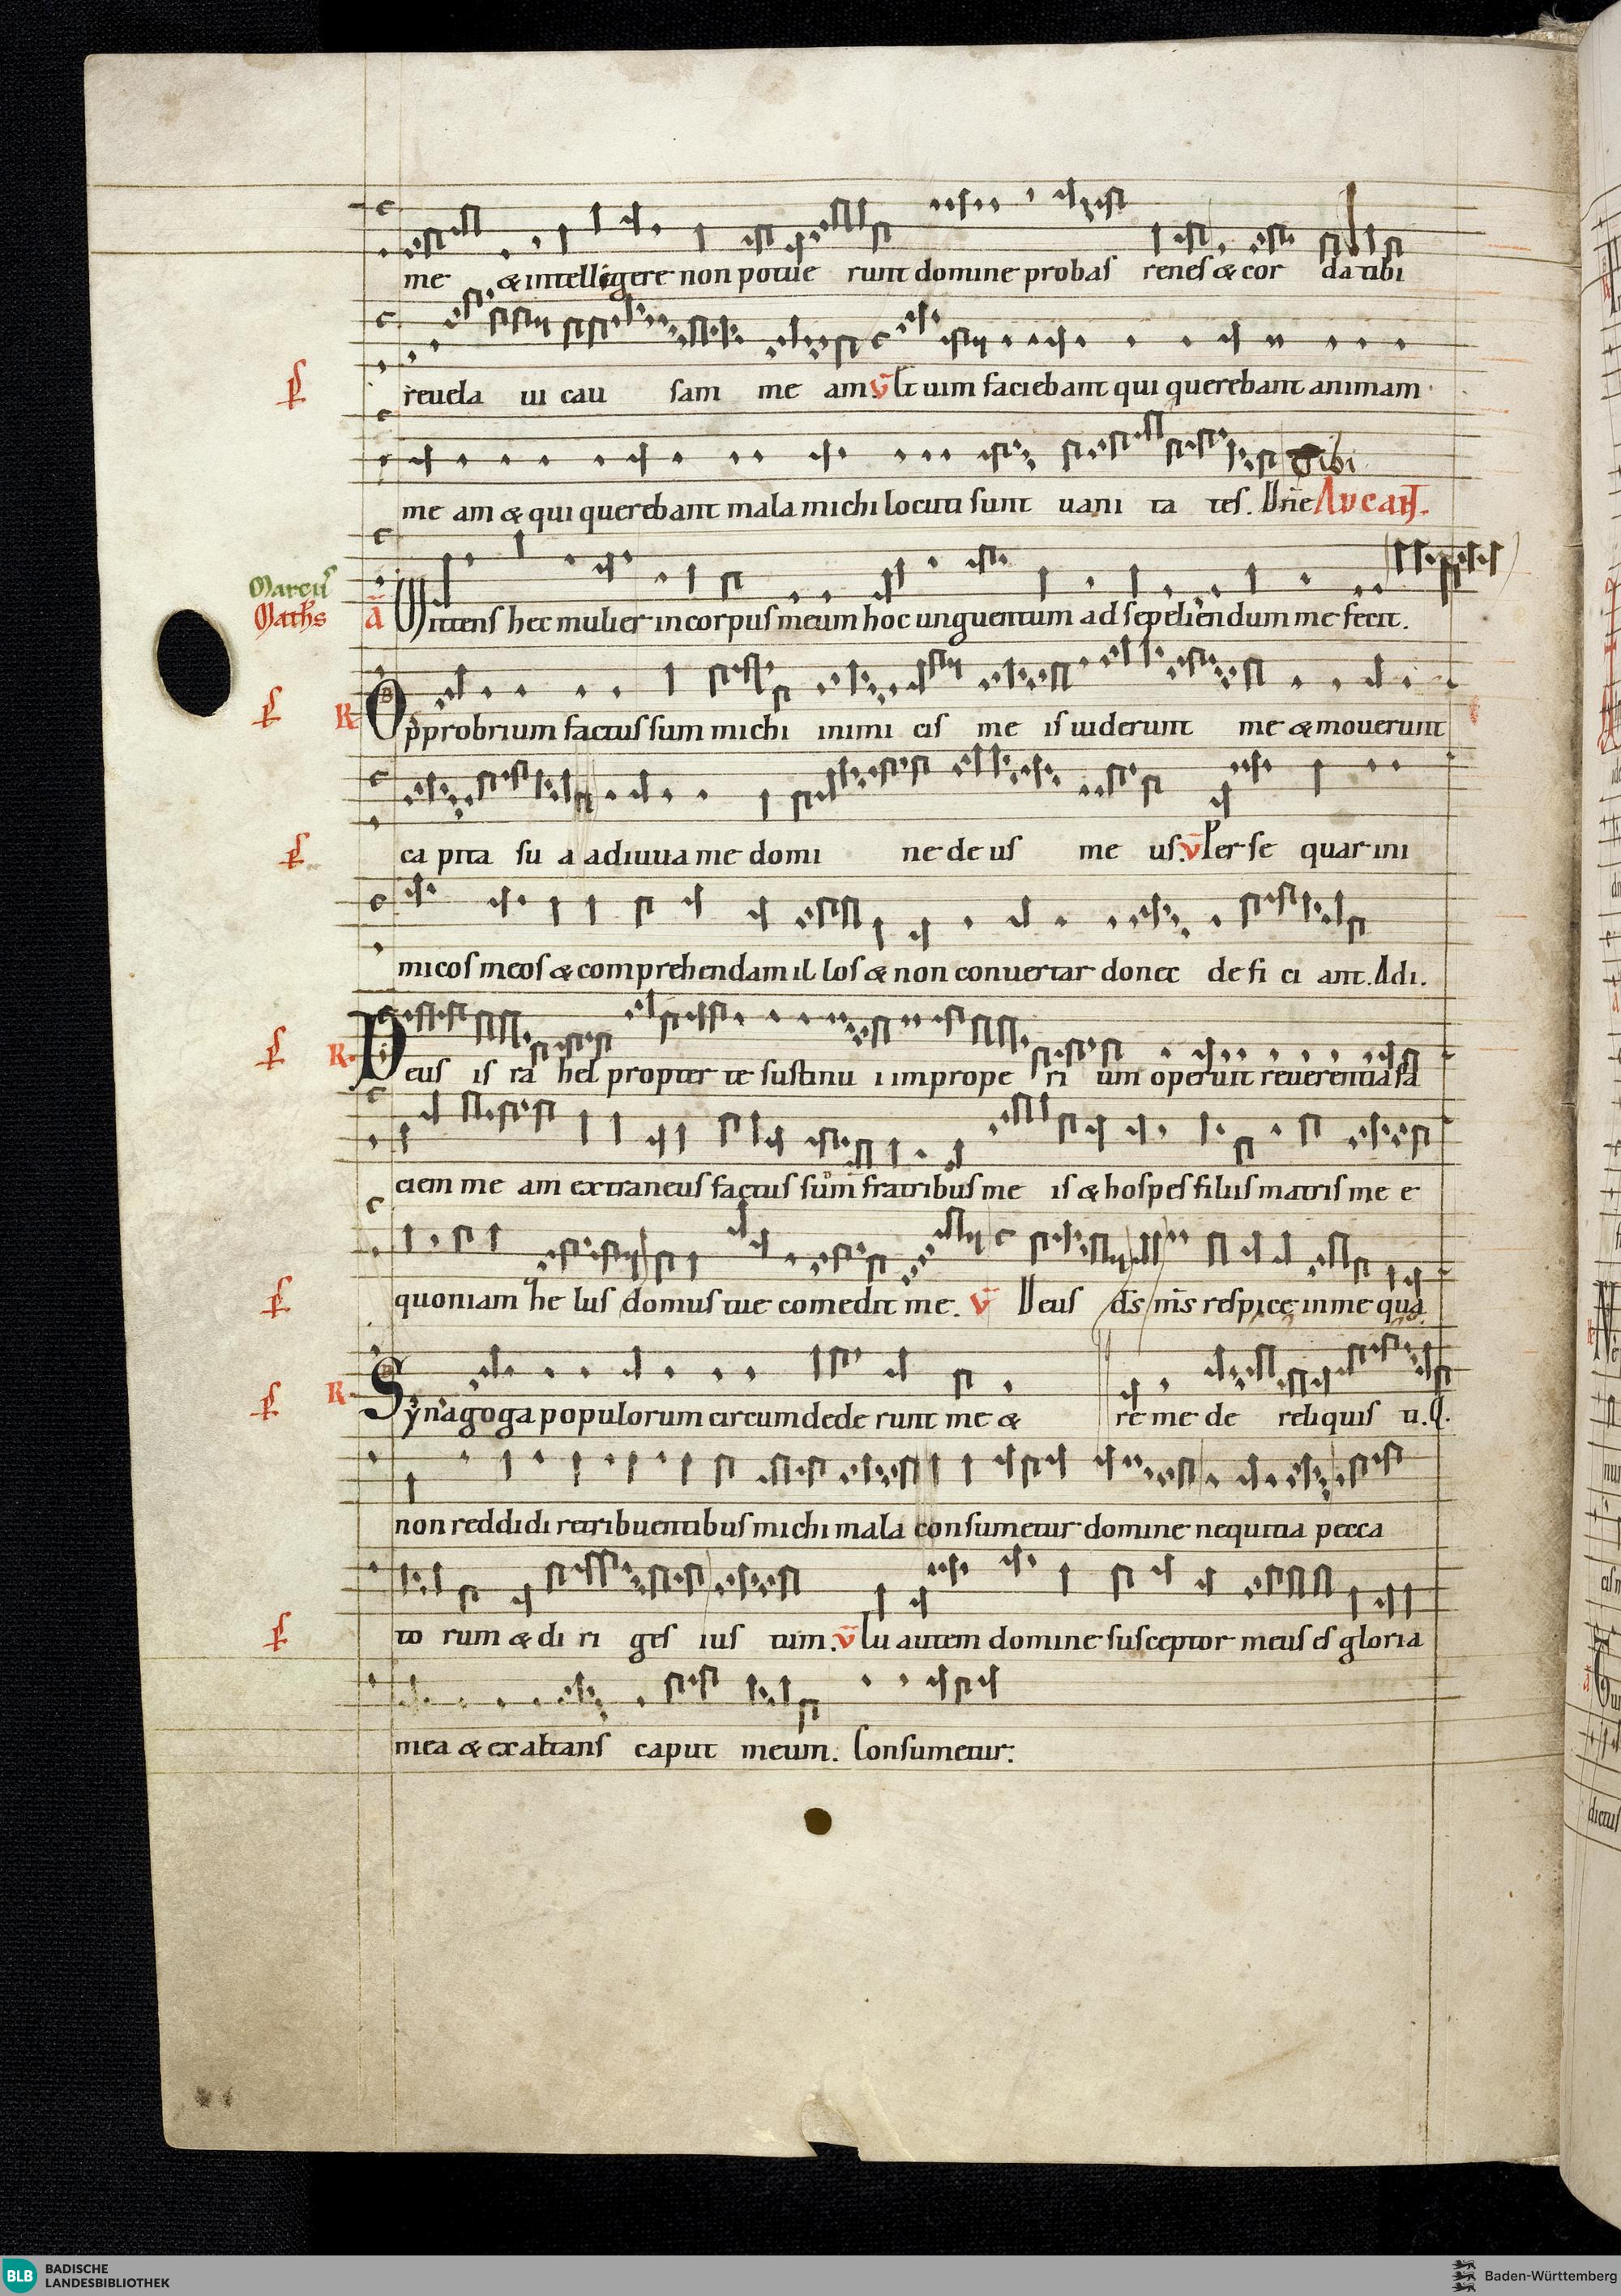 me & intelligere non potue runt domine probas renes & cor da tibi
reuela ui cau sam me am V Et uim faciebant qui querebant animam
Tibi
me am & qui querebant mala michi locuti sunt uani ta tes. Dne
Marcus
Maths a Mittens hec mulier in corpus meum hoc unguentum ad sepeliendum me fecit.
R Opprobrium factus sum michi inimi cis me is uiderunt me & mouerunt
ca pita su a adiuua me domi ne de us me us. V Per se quar ini
micos meos & comprehendam il los & non conuertar donec de fi ci ant. Adi.
R. Deus is ra hel propter te sustinu i imprope ri um operuit reuerentia fa
ciem me am extraneus factus sum fratribus me is & hospes filiis matris me e
quoniam he lus domus tue comedit me. V Deus ds ms respice in me qua
R. Synagoga populorum circumdede runt me & re me de reliquis ti. Q.
non reddidi retribuentibus michi mala consumetur domine nequitia pecca
to rum & di ri ges ius tum. V Tu autem domine susceptor meus es gloria
mea & exaltans caput meum. Consumetur.
dictus
BLB BADISCHE LANDESBIBLIOTHEK
Baden-Württemberg